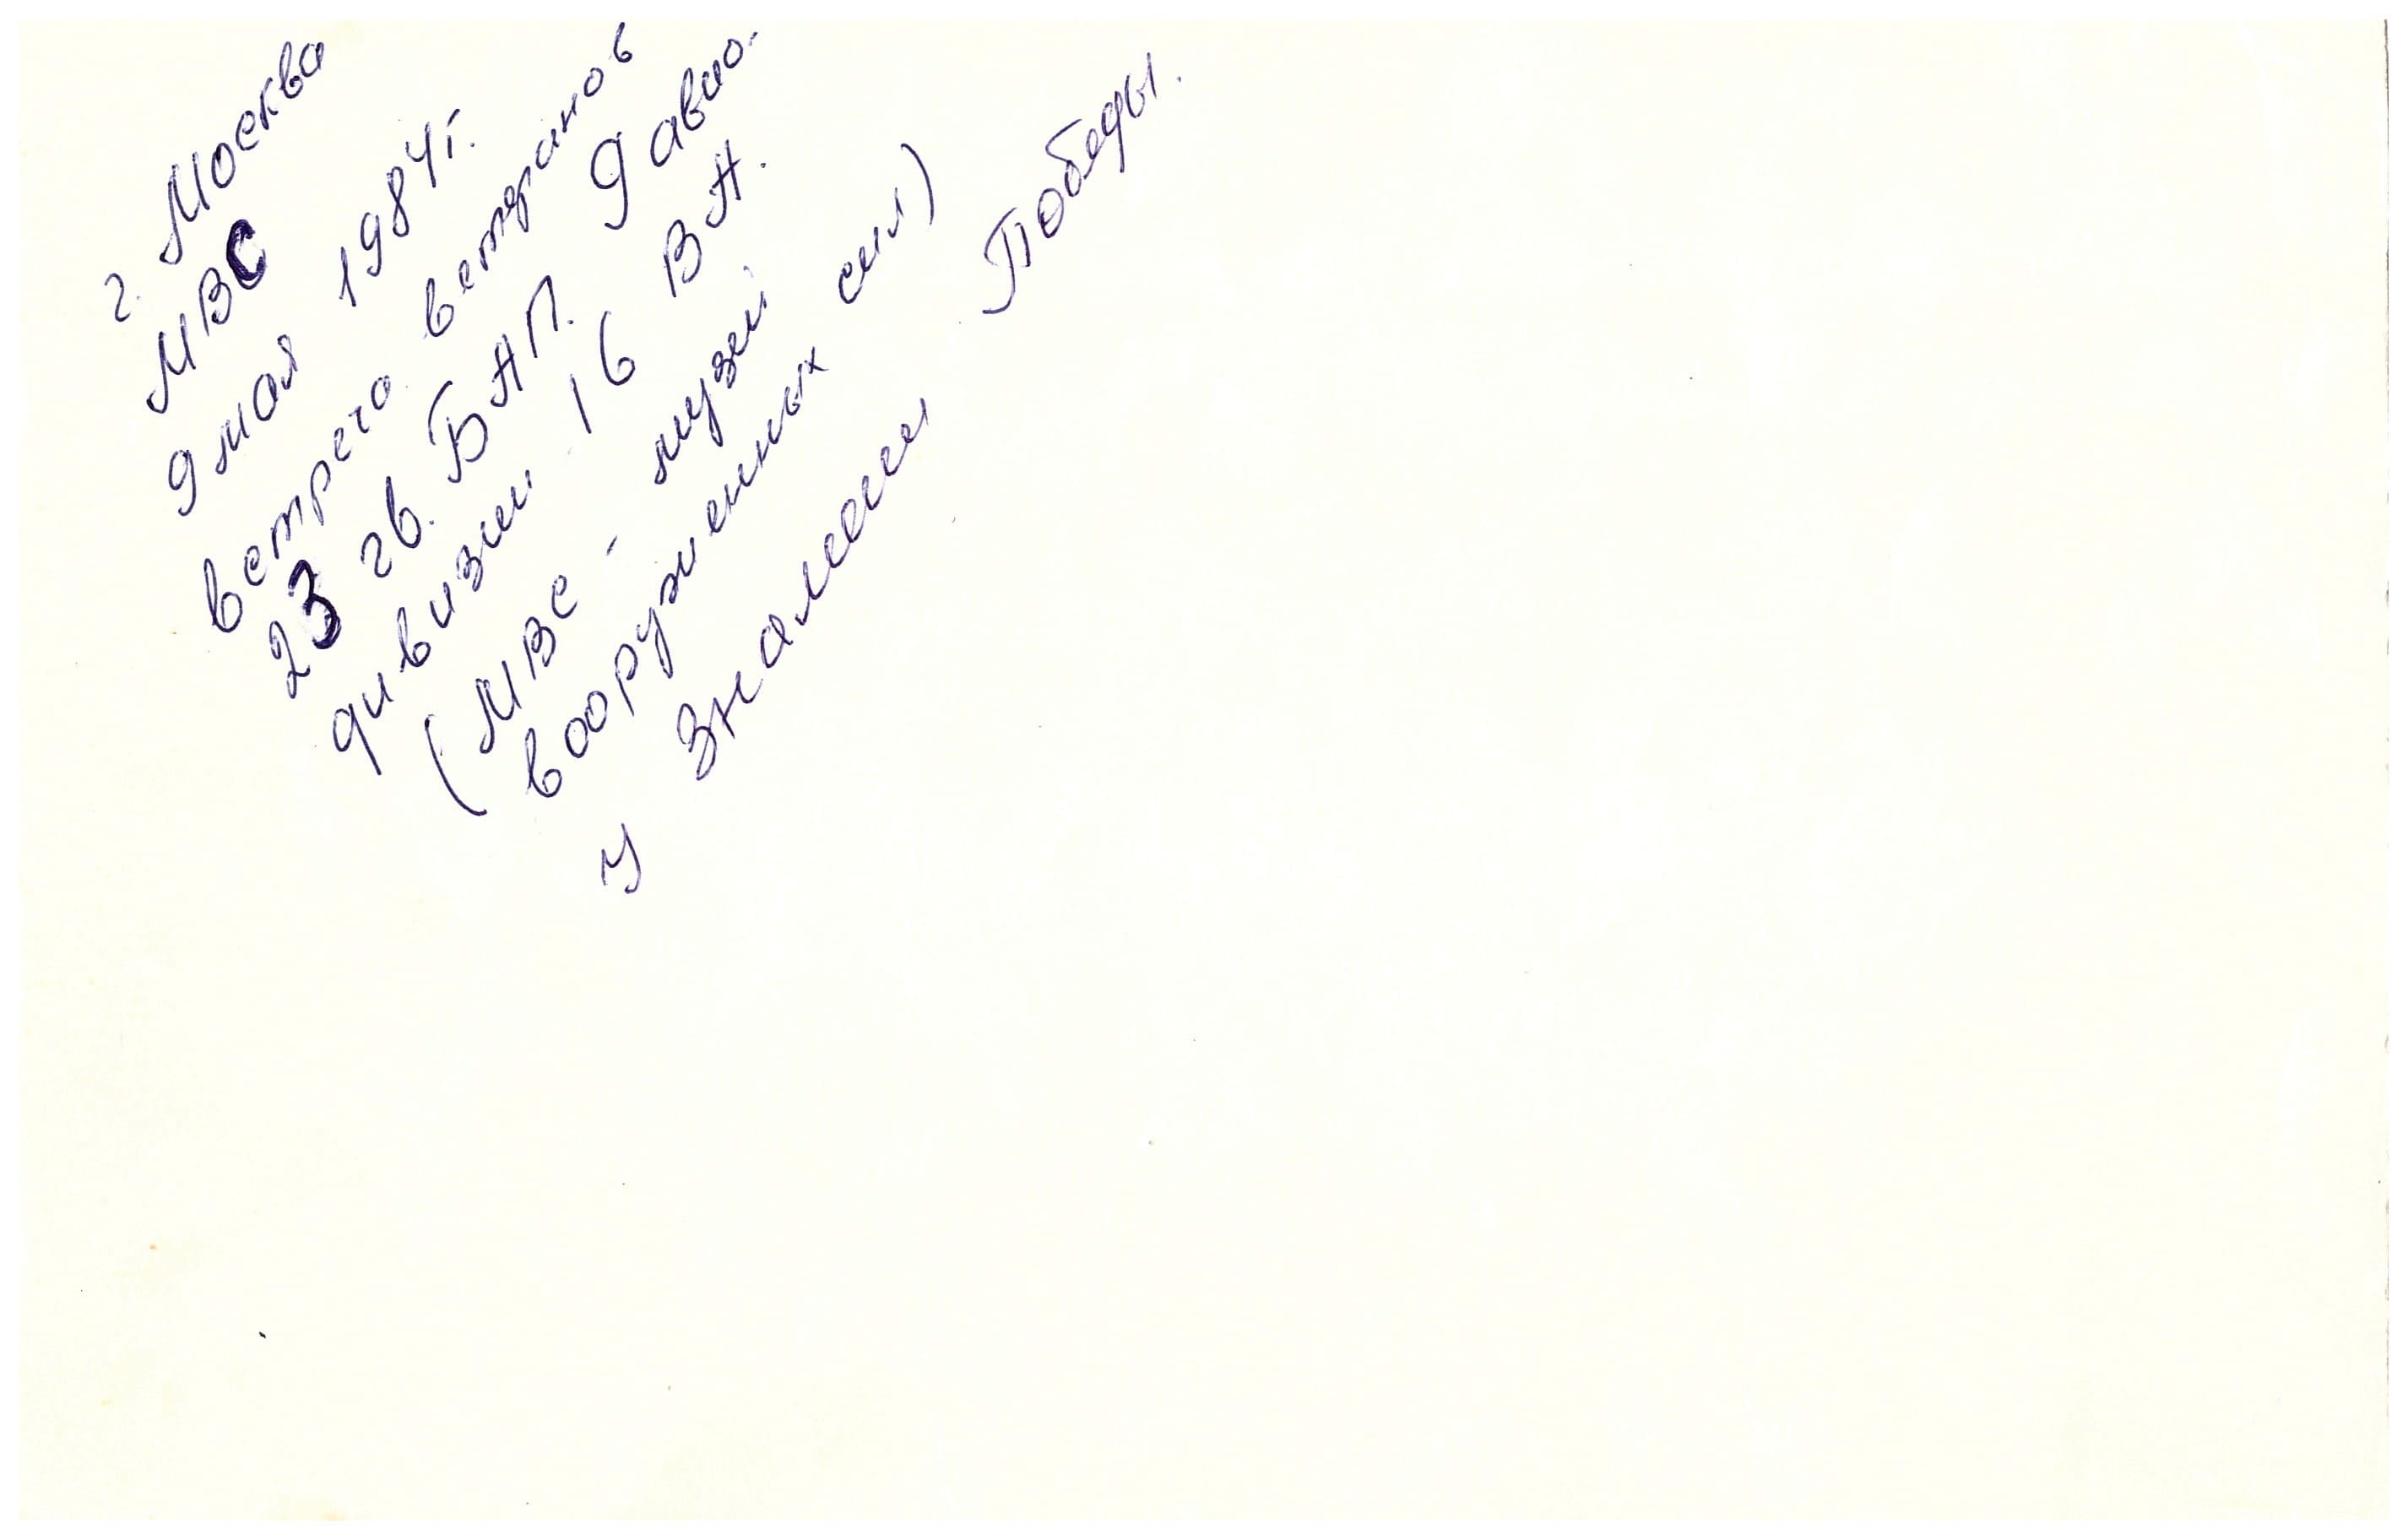 г. Москва
МВС
9 мая 1984г.
встреча ветеранов
23 гв. БАП. 9 авио.
дивизии 16 ВА.
(МВС - музей
вооруженных сил)
У знамени Победы.